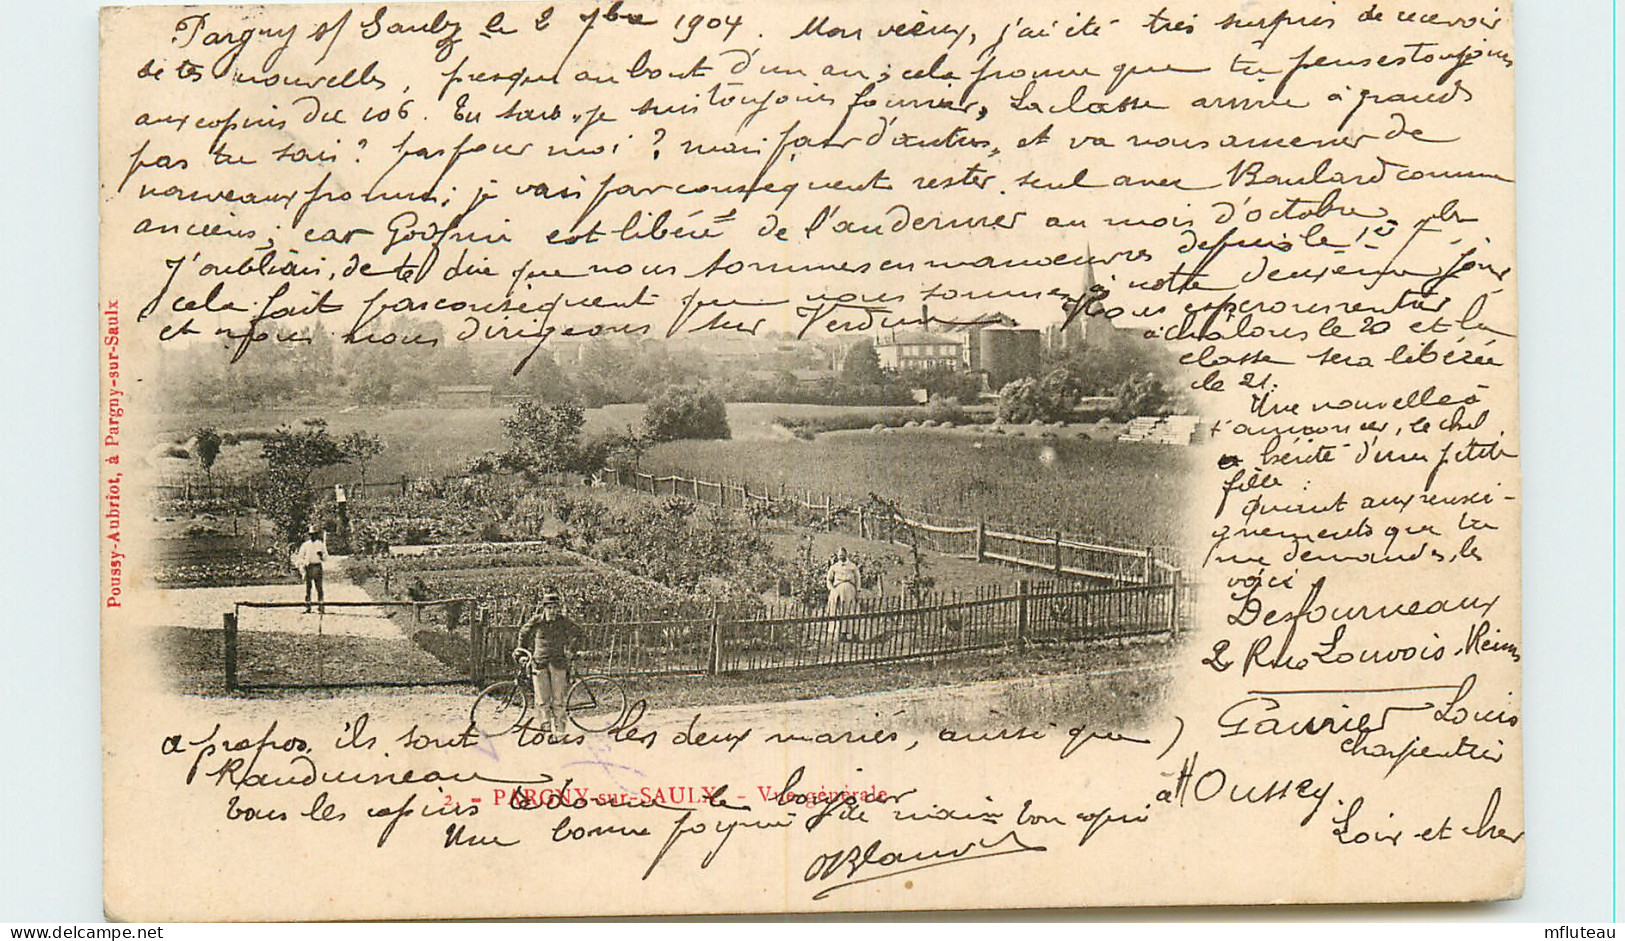 Pargny s/ Saulx le 2 7bre 1904. Mon vieux, j'ai été très surpris de recevoir
de tes nouvelles, presque au bout d'un an; cela prouve que tu penses toujours
aux copins du 106. Tu sais, je suis toujours fourrier, La classe arrive à grands
pas tu sais? pas pour moi? mais pour d'autres, et va nous amener de
nouveaux; je vais par conséquent rester seul avec Boulard comme
anciens; car est libéré de l'au dernier au mois d'octobre
J'oubliais, de te dire que nous sommes en manoeuvres depuis le 1er 7bre
cela fait par conséquent que nous sommes à notre deuxième jour
et nous nous dirigeons sur Verdun. Nous espérons rentrer
à châlons le 20 et la
classe sera libérée
le 21.
Une nouvelle à
t'annoncer, le
hérité d'une petite
fille.
Quant aux rensei-
gnements que tu
me demandes, les
voici
Desfourneaux
2 Rue Louvois, Reims
Gaurier Louis
charpentier
à Houssay
Loir-et-cher
a propos, ils sont tous les deux mariés, aussi que
Tous les copins te donne le bonjour
Une bonne poignée de main ton copin
Poussy-Aubriot, à Pargny-sur-Saulx
2. - PARGNY-sur-SAULX - Vue générale
delcampe.net
mfluteau